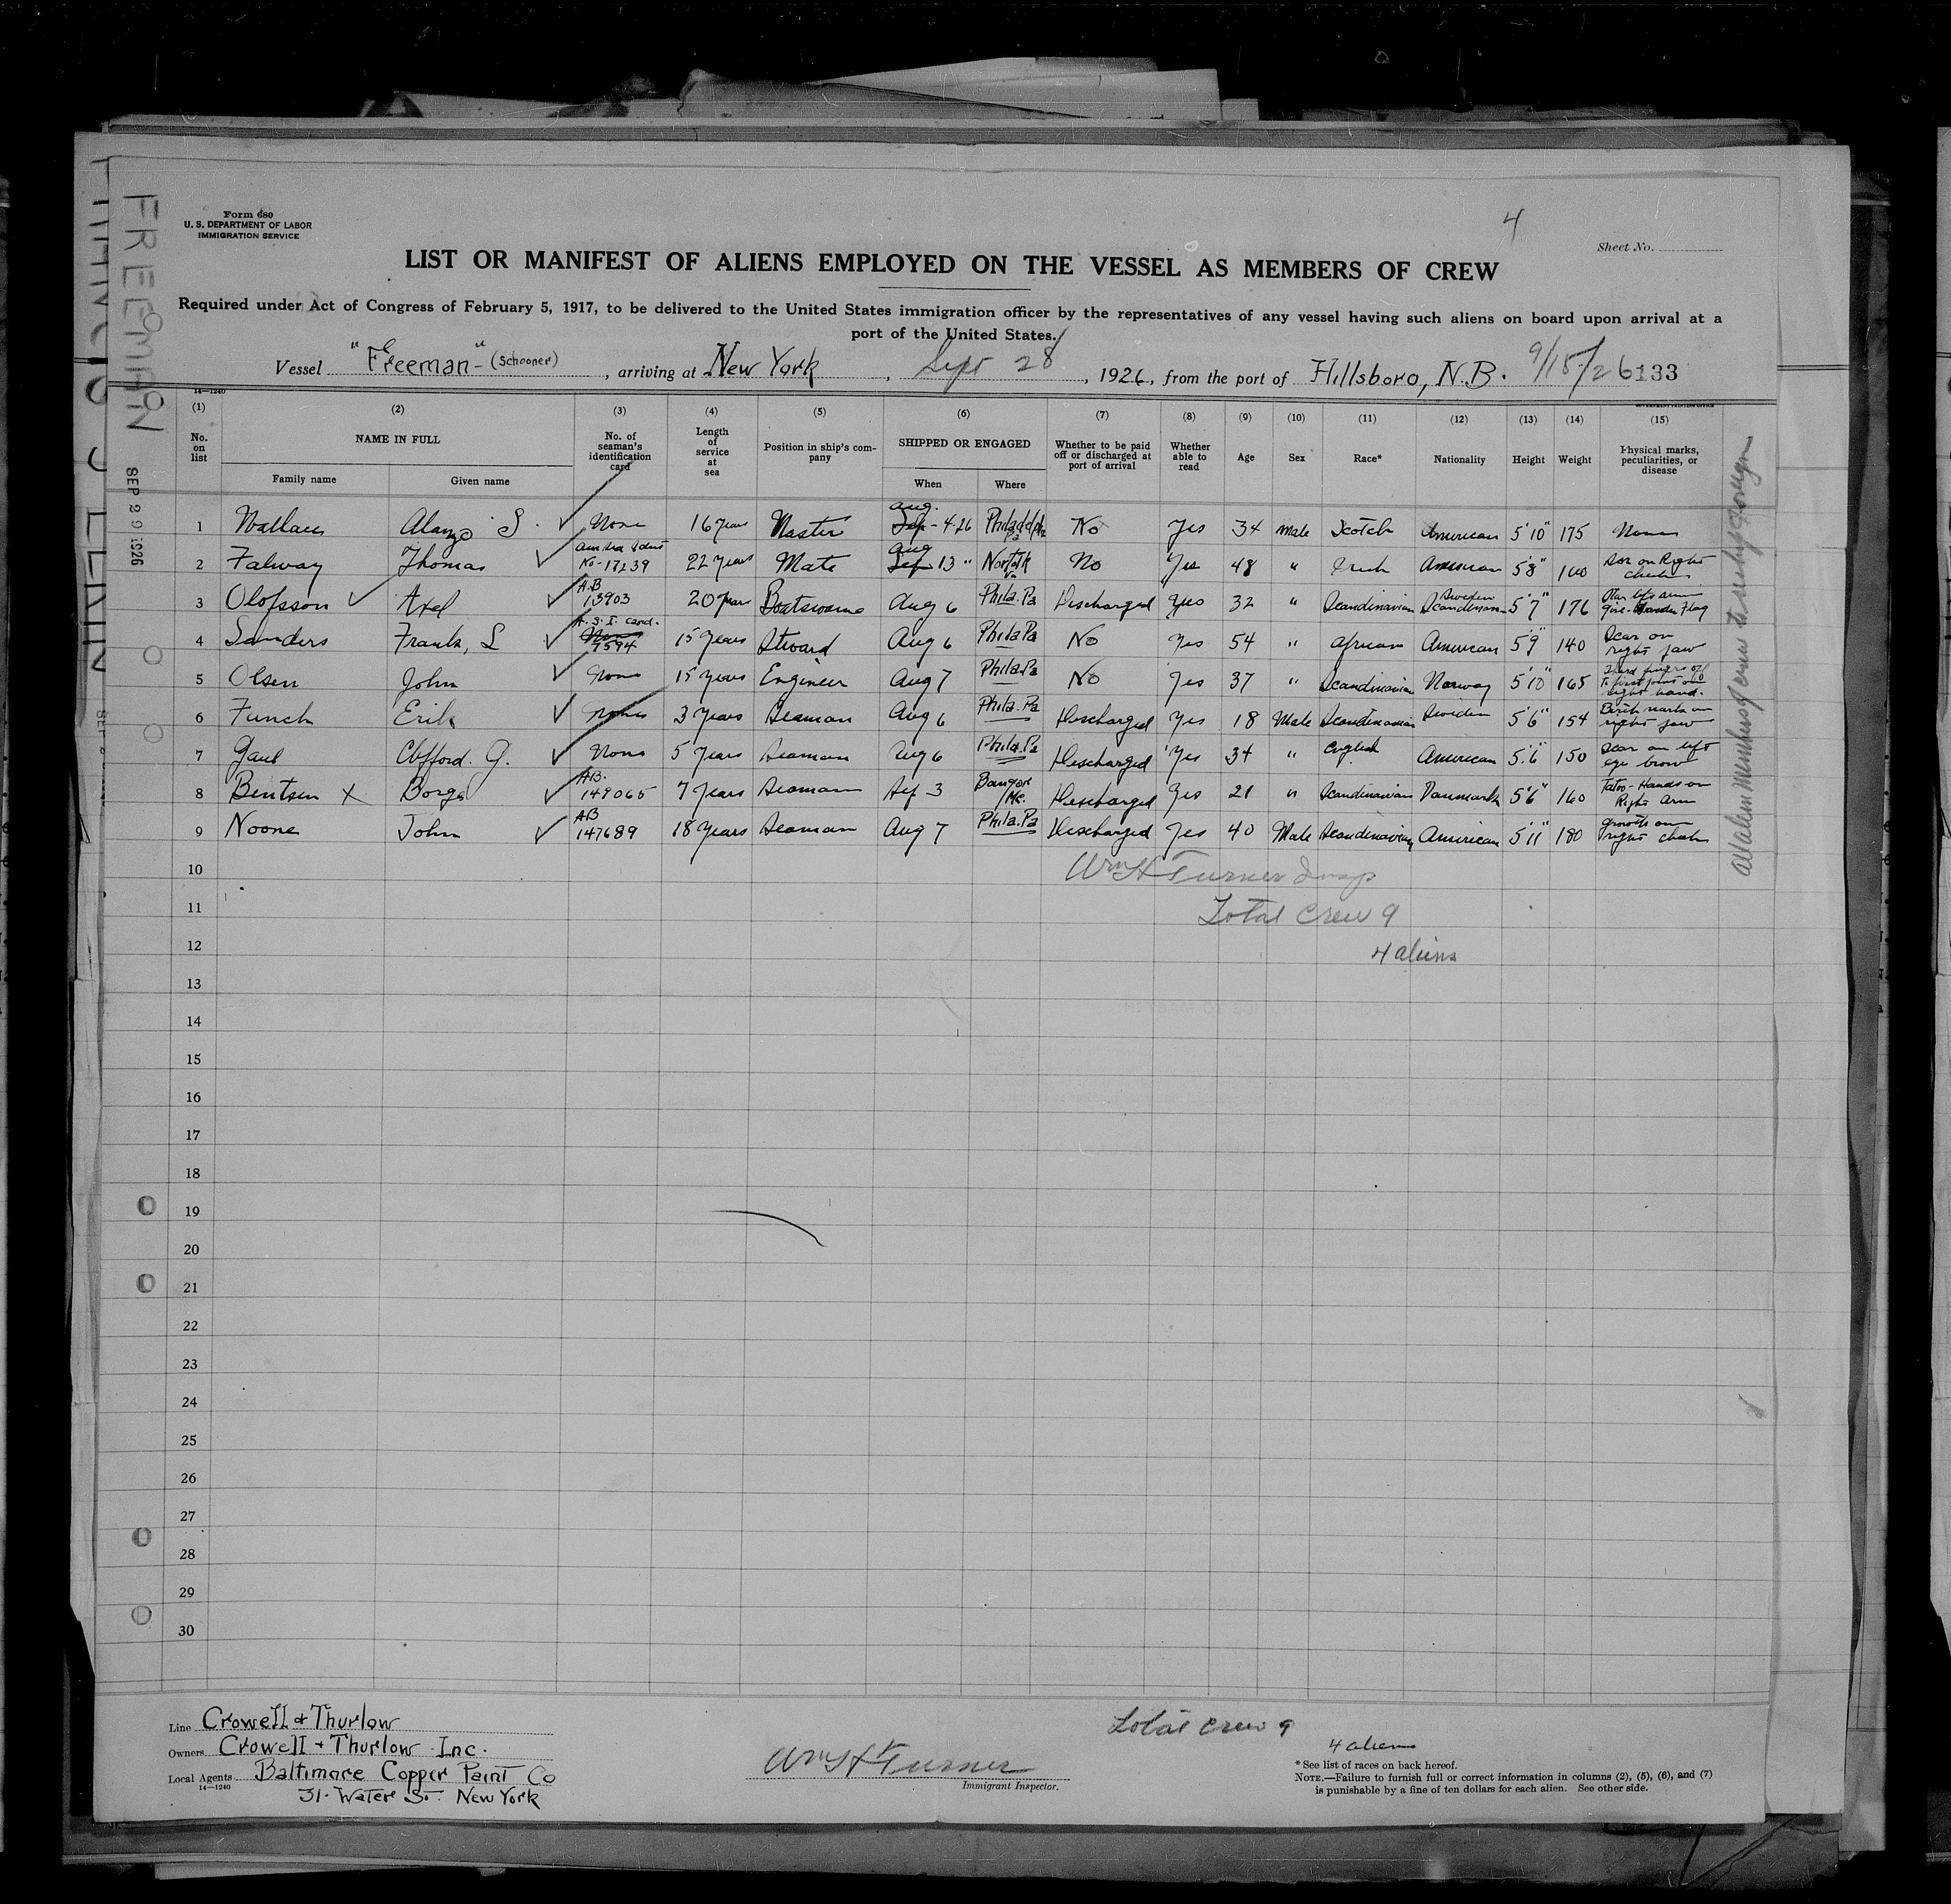 Form 680
U. S. DEPARTMENT OF LABOR
IMMIGRATION SERVICE
4
Sheet No.
LIST OR MANIFEST OF ALIENS EMPLOYED ON THE VESSEL AS MEMBERS OF CREW
Required under Act of Congress of February 5, 1917, to be delivered to the United States immigration officer by the representatives of any vessel having such aliens on board upon arrival at a
port of the United States.
Vessel "Freeman" (Schooner), arriving at New York, Sept 28, 1926, from the port of Hillsboro, N.B. 9/15/26 133
14—1240
(1) (2) (3) (4) (5) (6) (7) (8) (9) (10) (11) (12) (13) (14) (15)
No. on list NAME IN FULL No. of seaman's identification card Length of service at sea Position in ship's company SHIPPED OR ENGAGED Whether to be paid off or discharged at port of arrival Whether able to read Age Sex Race* Nationality Height Weight Physical marks, peculiarities, or disease
Family name Given name When Where
1 Wallace Alonzo S. None 16 years Master Aug. Sep - 4-26 Philadelph Pa No Yes 34 Male Scotch American 5'10" 175 None
2 Falway Thomas No-17239 22 years Mate Aug Sep 13 " Norfolk Va No Yes 48 " Irish American 5'8" 160 Scar on Right cheek
3 Olofsson Axel A.B 13903 20 years Boatswain Aug 6 Phila. Pa Discharged Yes 32 " Scandinavian Sweden Scandinavian 5'7" 176 left arm Flag
4 Sanders Frank, L A.S.I. Card. None 7594 15 years Steward Aug 6 Phila Pa No Yes 54 " African American 5'9" 140 Scar on right jaw
5 Olsen John None 15 years Engineer Aug 7 Phila. Pa No Yes 37 " Scandinavian Norway 5'10" 165 Third finger off To first joint on right hand.
6 Funch Erik None 3 years Seaman Aug 6 Phila. Pa Discharged Yes 18 Male Scandinavian Sweden 5'6" 154 Birth mark on right jaw
7 Gaul Clifford. G. None 5 years Seaman Aug 6 Phila. Pa Discharged Yes 34 " English American 5'6" 150 Scar on left eye brow
8 Bentsen X Borge A.B. 149065 7 years Seaman Sep 3 Bangor Me. Discharged Yes 21 " Scandinavian Danmark 5'6" 160 Tatoo-Hands on Right arm
9 Noone John AB 147689 18 years Seaman Aug 7 Phila. Pa Discharged Yes 40 Male Scandinavian American 5'11" 180 Growth on right cheek
10 Wm H Turner Insp
11 Total Crew 9
12 4 aliens
13
14
15
16
17
18
19
20
21
22
23
24
25
26
27
28
29
30
FREEMAN
SEP 29 1926
Line Crowell & Thurlow
Owners Crowell & Thurlow Inc.
Local Agents Baltimore Copper Paint Co
14—1240
31. Water St. New York
Wm H Turner
Immigrant Inspector.
Total crew 9
4 aliens
*See list of races on back hereof.
NOTE.—Failure to furnish full or correct information in columns (2), (5), (6), and (7)
is punishable by a fine of ten dollars for each alien. See other side.